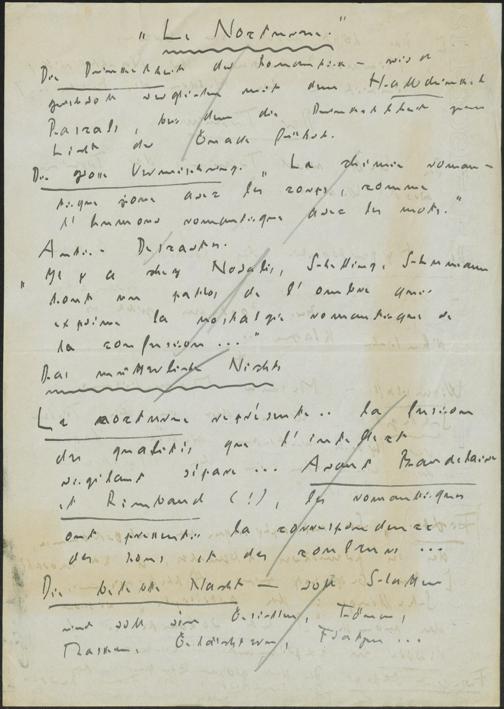 "Le Nocturne."
Die Dunkelheit der Romantik – wird
verglichen mit dem Halbdunkel
Pascals, bei dem die Dunkelheit zum
Licht der Gnade führt.
Die grosse Vermischung. "La chimie roman-
tique joue avec les zones, comme
l'humour romantique avec les mots."
Anti-Descartes.
"Il y a chez Novalis, Schelling, Schumann
tout un pathos de l'ombre qui
exprime la nostalgie romantique de
la confusion ..."
Das mütterliche Nichts
Le nocturne représente .. la fusion
des qualités que l'intellect
vigilant sépare ... Avant Baudelaire
et Rimbaud (!), les romantiques
ont pressenti la correspondance
des sons et des couleurs ...
Die belebte Nacht – voll Schatten
und voll von Gesichten, Tönen,
Masken, Gelächtern,